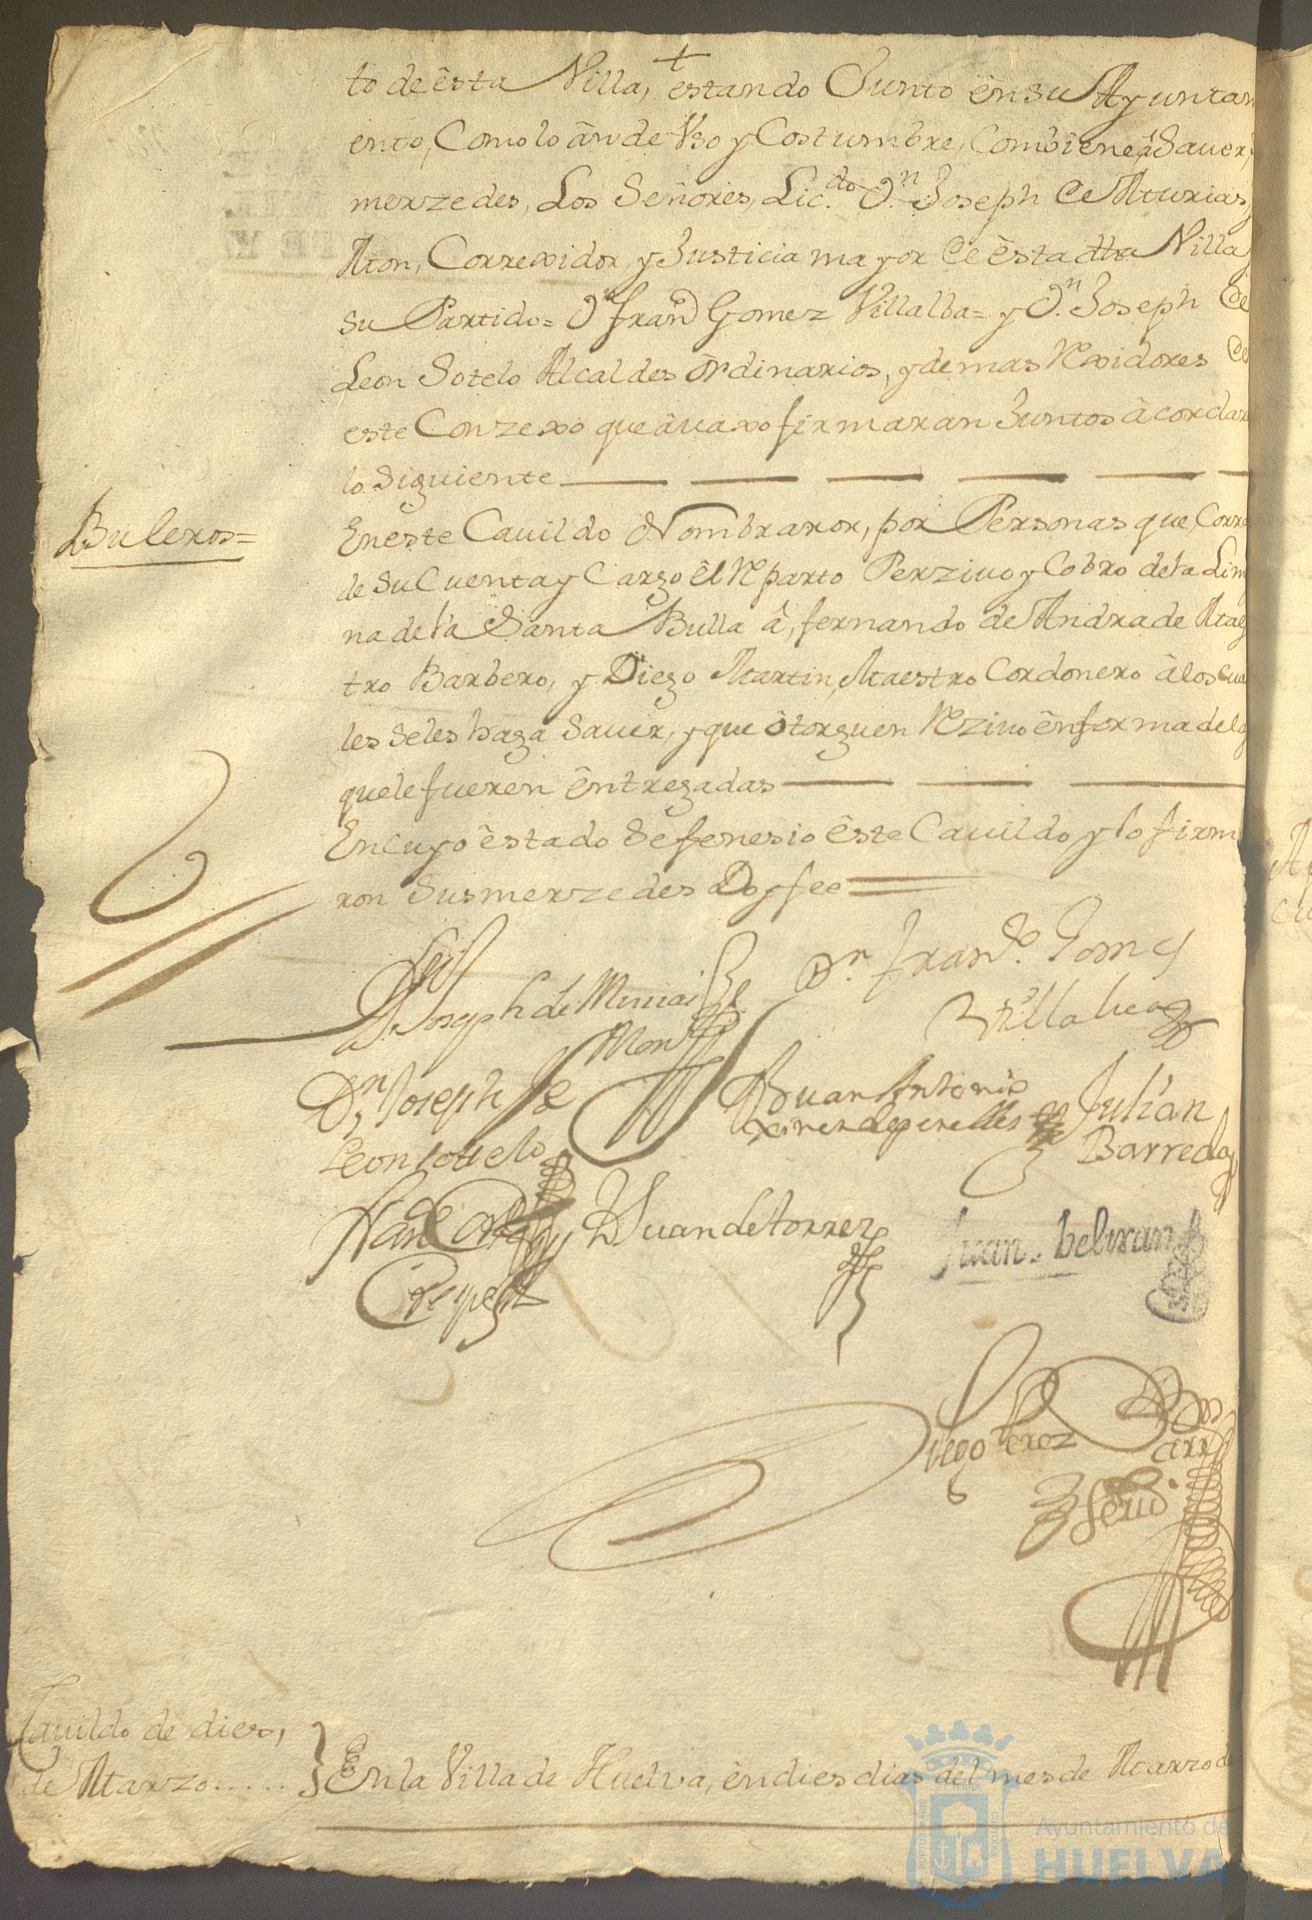 to de êsta Villa, estando Junto ên su Ayuntam
ento, Como lo ân de Vso y Costumbre, Combiene â Sauer,
merzedes, Los Señores, Lic.do D.n Joseph de
Mon, Correxidor, y Justicia mayor de êsta dha Villa y
su Partido= D.n fran.co Gomez Villalba= y D.n Joseph de
Leon Sotelo Alcaldes Ordinarios, y demas Rexidores de
este Conzexo que âuaxo firmaran Juntos âcordar
lo Siguiente
Buleros=
En este Cauildo Nombraron, por Personas que, Corra
de su Cuenta y Cargo êl Reparto Perziuo y Cobro de la Lim
na de la Santa Bulla â, fernando de Andrade Maes
tro Barbero, y Diego Martin, Maestro Cordonero â los cua
les se les haga Sauer, y que ôtorguen Reziuo ên forma de l
que le fueren êntregadas
En cuyo êstado Se fenesio êste Cauildo y lo firm
ron Sus merzedes Doy fee
D. Joseph de
Mon
D.n Fran.co Gomez
Villalua
D.n Joseph de
Leon Sotelo
Juan Antonio
Julian
Barreda
D Juan de torrez
Juan. beltran
Diego Perez
Cauildo de dies,
de Marzo.....
En la Villa de Huelva, ên dies dias del mes de Marzo de
Ayuntamiento de
HUELVA